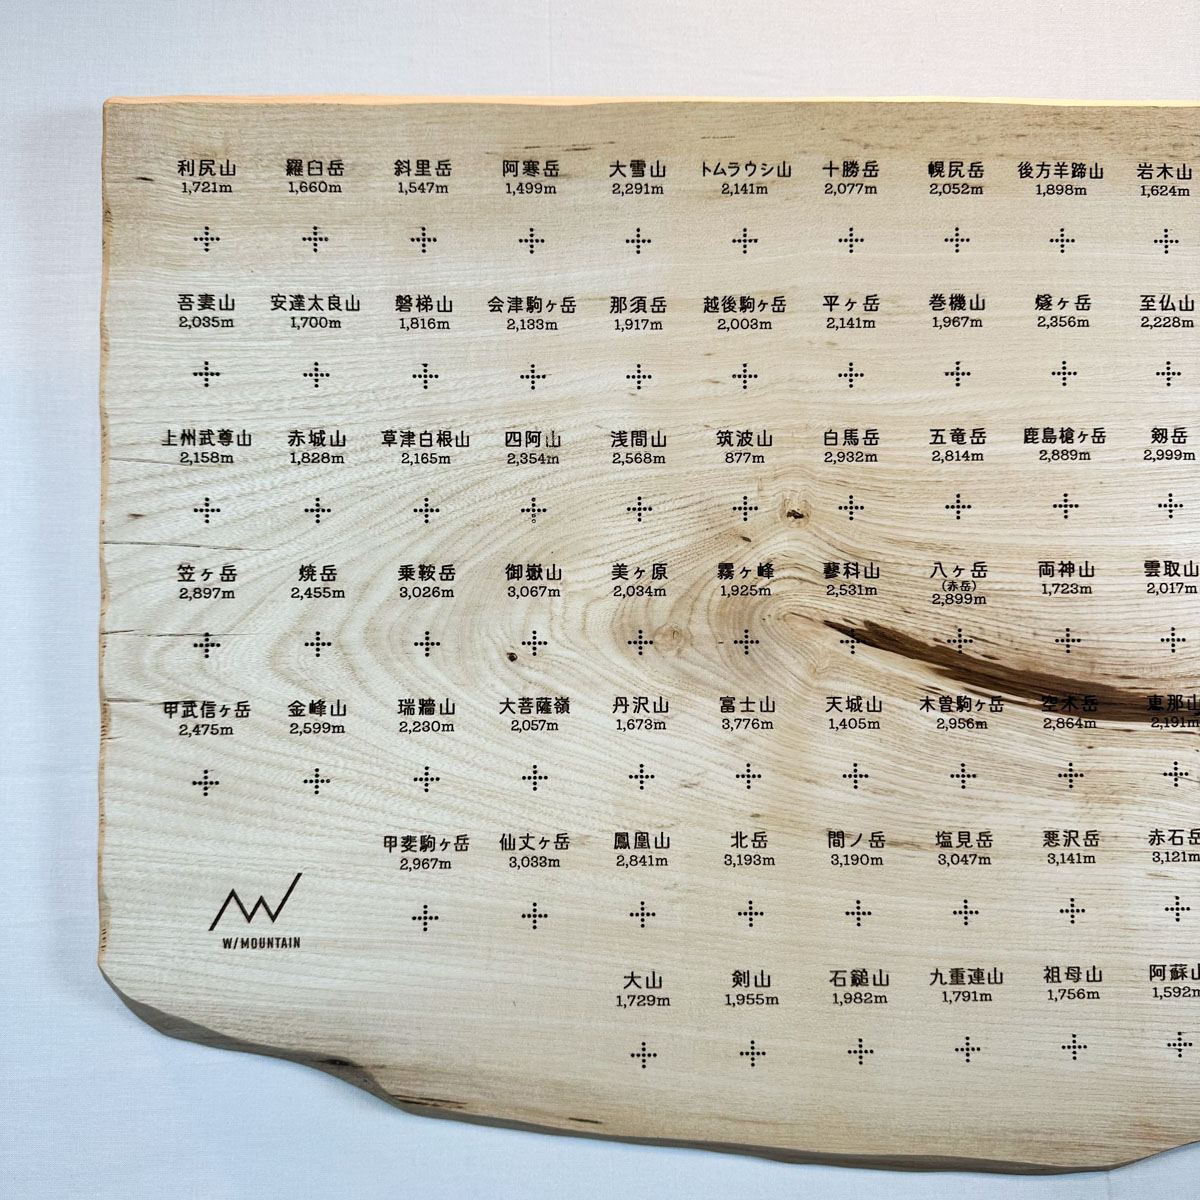 利尻山 羅臼岳 斜里岳 阿寒岳 大雪山 トムラウシ山 十勝岳 幌尻岳 後方羊蹄山 岩木山
1,721m 1,660m 1,547m 1,499m 2,291m 2,141m 2,077m 2,052m 1,898m 1,624m
吾妻山 安達太良山 磐梯山 会津駒ヶ岳 那須岳 越後駒ヶ岳 平ヶ岳 巻機山 燧ヶ岳 至仏山
2,035m 1,700m 1,816m 2,133m 1,917m 2,003m 2,141m 1,967m 2,356m 2,228m
上州武尊山 赤城山 草津白根山 四阿山 浅間山 筑波山 白馬岳 五竜岳 鹿島槍ヶ岳 剱岳
2,158m 1,828m 2,165m 2,354m 2,568m 877m 2,932m 2,814m 2,889m 2,999m
笠ヶ岳 焼岳 乗鞍岳 御嶽山 美ヶ原 霧ヶ峰 蓼科山 八ヶ岳 両神山 雲取山
(赤岳)
2,897m 2,455m 3,026m 3,067m 2,034m 1,925m 2,531m 2,899m 1,723m 2,017m
甲武信ヶ岳 金峰山 瑞牆山 大菩薩嶺 丹沢山 富士山 天城山 木曽駒ヶ岳 空木岳 恵那山
2,475m 2,599m 2,230m 2,057m 1,673m 3,776m 1,405m 2,956m 2,864m 2,191m
甲斐駒ヶ岳 仙丈ヶ岳 鳳凰山 北岳 間ノ岳 塩見岳 悪沢岳 赤石岳
2,967m 3,033m 2,841m 3,193m 3,190m 3,047m 3,141m 3,121m
W/MOUNTAIN
大山 剣山 石鎚山 九重連山 祖母山 阿蘇山
1,729m 1,955m 1,982m 1,791m 1,756m 1,592m